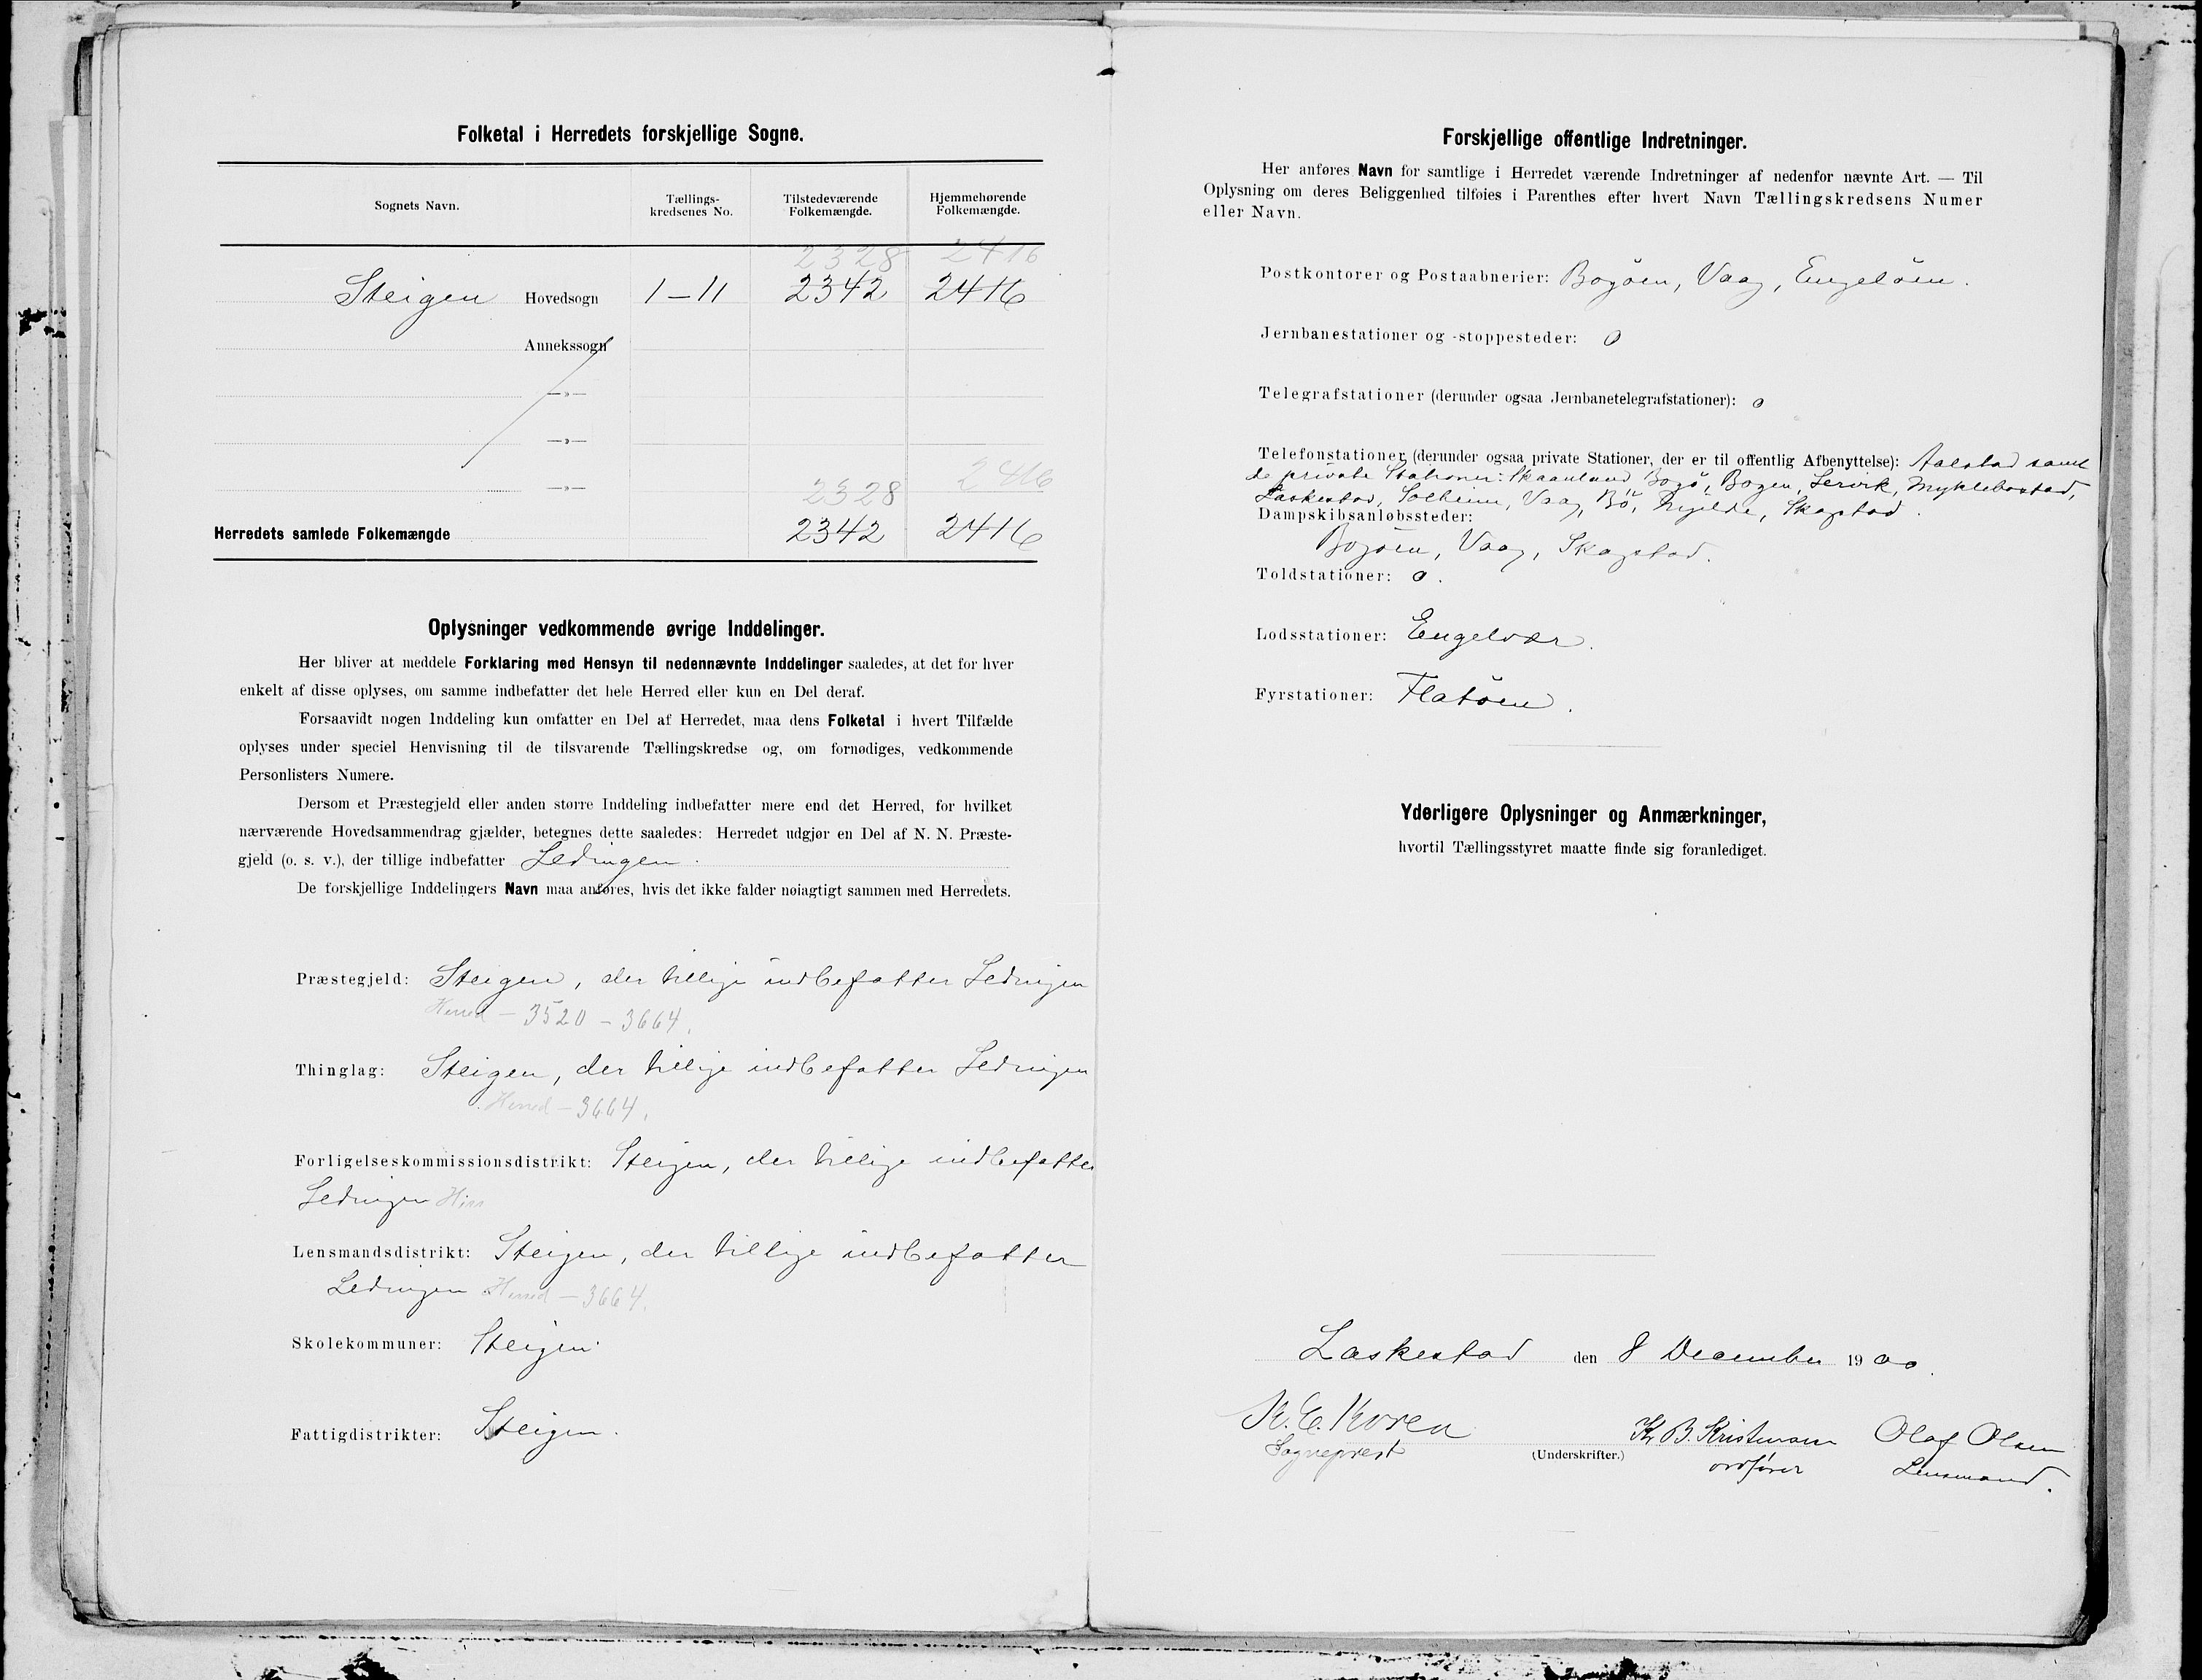 Folketal i Herredets forskjellige Sogne.
Sognets Navn.
Tællings-
kredsenes No.
Tilstedeværende
Folkemængde.
Hjemmehørende
Folkemængde.
2328 2416
Steigen Hovedsogn 1-11 2342 2416
Annekssogn
—»—
—»—
2328 2416
—»—
Herredets samlede Folkemængde 2342 2416
Oplysninger vedkommende øvrige Inddelinger.
Her bliver at meddele Forklaring med Hensyn til nedennævnte Inddelinger saaledes, at det for hver
enkelt af disse oplyses, om samme indbefatter det hele Herred eller kun en Del deraf.
Forsaavidt nogen Inddeling kun omfatter en Del af Herredet, maa dens Folketal i hvert Tilfælde
oplyses under speciel Henvisning til de tilsvarende Tællingskredse og, om fornødiges, vedkommende
Personlisters Numere.
Dersom et Præstegjeld eller anden større Inddeling indbefatter mere end det Herred, for hvilket
nærværende Hovedsammendrag gjælder, betegnes dette saaledes: Herredet udgjør en Del af N. N. Præste-
gjeld (o. s. v.), der tillige indbefatter Ledingen.
De forskjellige Inddelingers Navn maa anføres, hvis det ikke falder nøiagtigt sammen med Herredets.
Præstegjeld: Steigen, der tillige indbefatter Ledingen
Herred - 3520 - 3664.
Thinglag: Steigen, der tillige indbefatter Ledingen
Herred - 3664.
Forligelseskommissionsdistrikt: Steigen, der tillige indbefatter
Ledingen
Lensmandsdistrikt: Steigen, der tillige indbefatter
Ledingen Herred - 3664.
Skolekommuner: Steigen.
Fattigdistrikter: Steigen.
Forskjellige offentlige Indretninger.
Her anføres Navn for samtlige i Herredet værende Indretninger af nedenfor nævnte Art. — Til
Oplysning om deres Beliggenhed tilføies i Parenthes efter hvert Navn Tællingskredsens Numer
eller Navn.
Postkontorer og Postaabnerier: Bogöen, Vaag, Engelöen.
Jernbanestationer og -stoppesteder: 0
Telegrafstationer (derunder ogsaa Jernbanetelegrafstationer): 0
Telefonstationer (derunder ogsaa private Stationer, der er til offentlig Afbenyttelse): Aalstad samt
de private Stationer: Skaanland, Bogö, Bogen, Lervik, Myklebostad,
Laskestad, Solheim, Vaag, Bö, Skagstad.
Dampskibsanløbssteder:
Bogöen, Vaag, Skagstad.
Toldstationer: 0.
Lodsstationer: Engelvær.
Fyrstationer: Flatöen.
Yderligere Oplysninger og Anmærkninger,
hvortil Tællingsstyret maatte finde sig foranlediget.
Laskestad den 8 December 1900.
K. E. Koren K. B. Kristensen Olaf Olsen
Sogneprest (Underskrifter.) ordförer Lensmand.